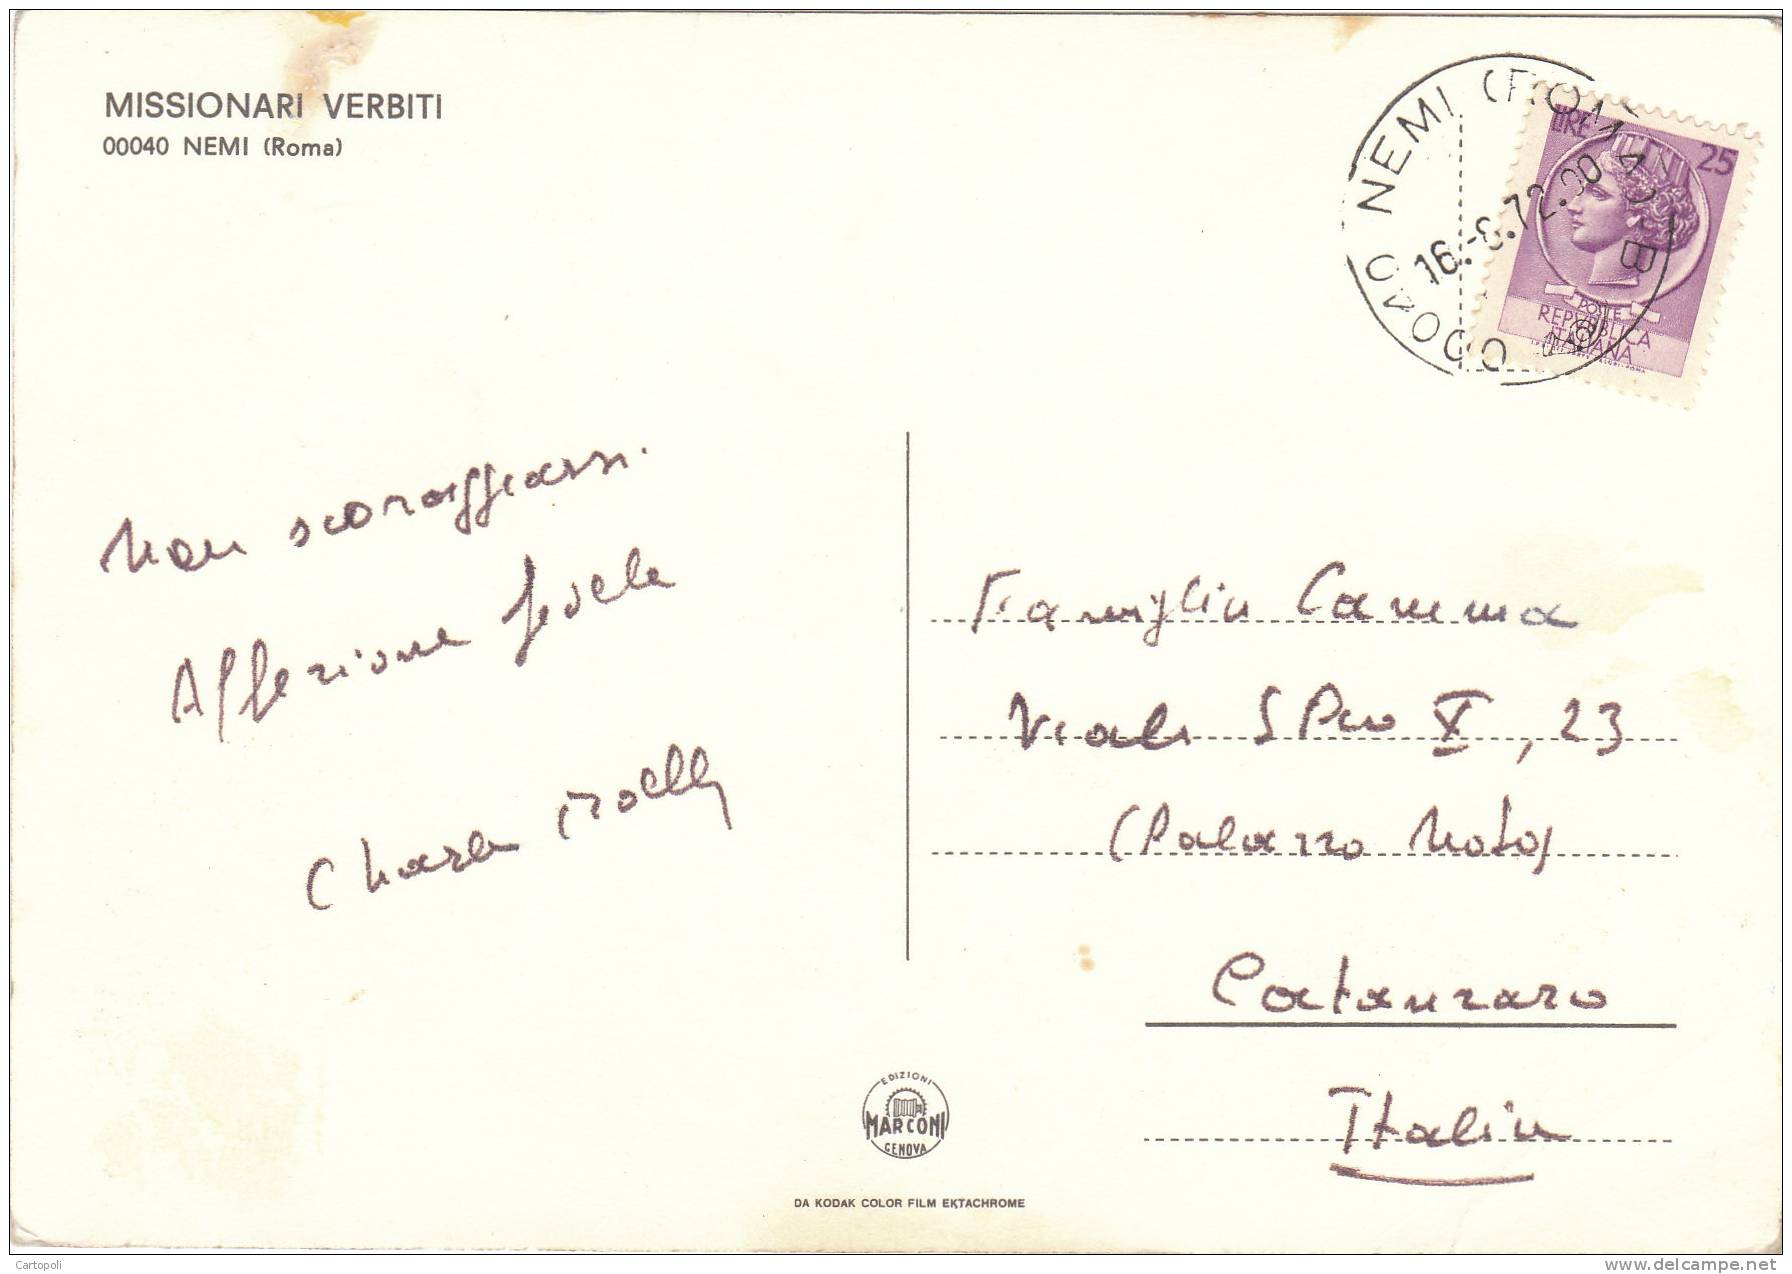 MISSIONARI VERBITI
00040 NEMI (Roma)
00040 NEMI (ROMA)
16.-8.72.00
B
LIRE 25
POSTE
REPVBBLICA
ITALIANA
Non scoraggiarsi.
Affezione
Chiara
Famiglia Camma
Viale S Pio X, 23
(Palazzo Noto)
Catanzaro
Italia
EDIZIONI
MARCONI
GENOVA
DA KODAK COLOR FILM EKTACHROME
Cartopoli
www.delcampe.net